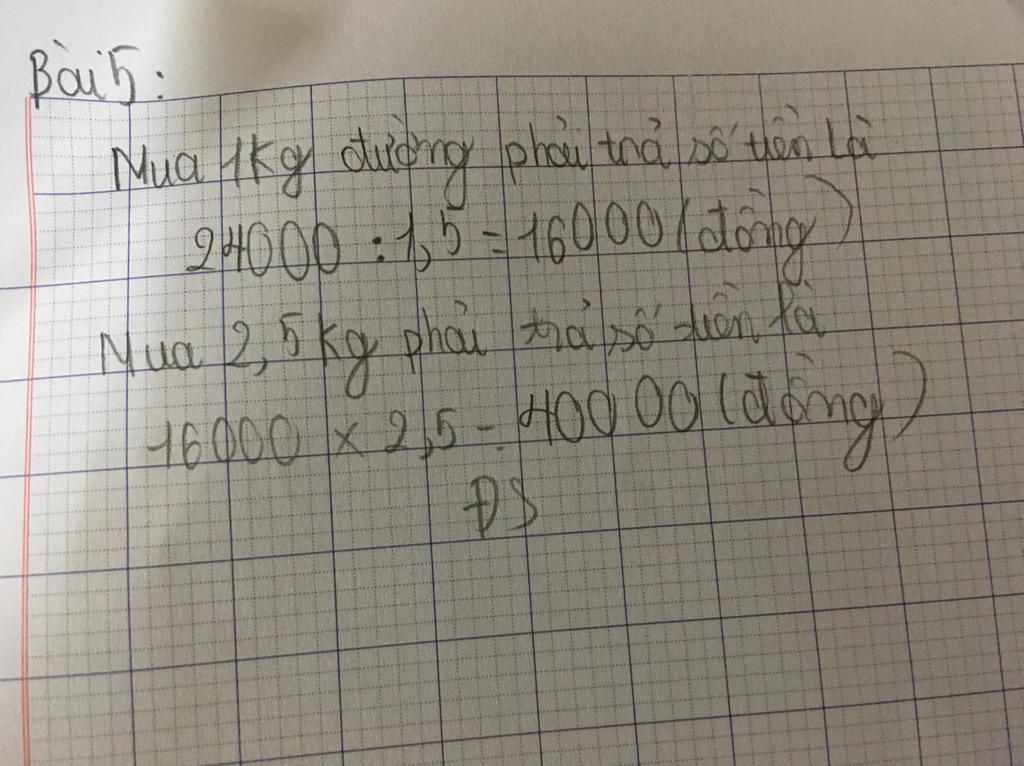 Bài 5:
Mua 1kg đường phải trả số tiền là
24000 : 1,5 = 16000 (đồng)
Mua 2,5 kg phải trả số tiền là
16000 x 2,5 = 40000 (đồng)
ĐS